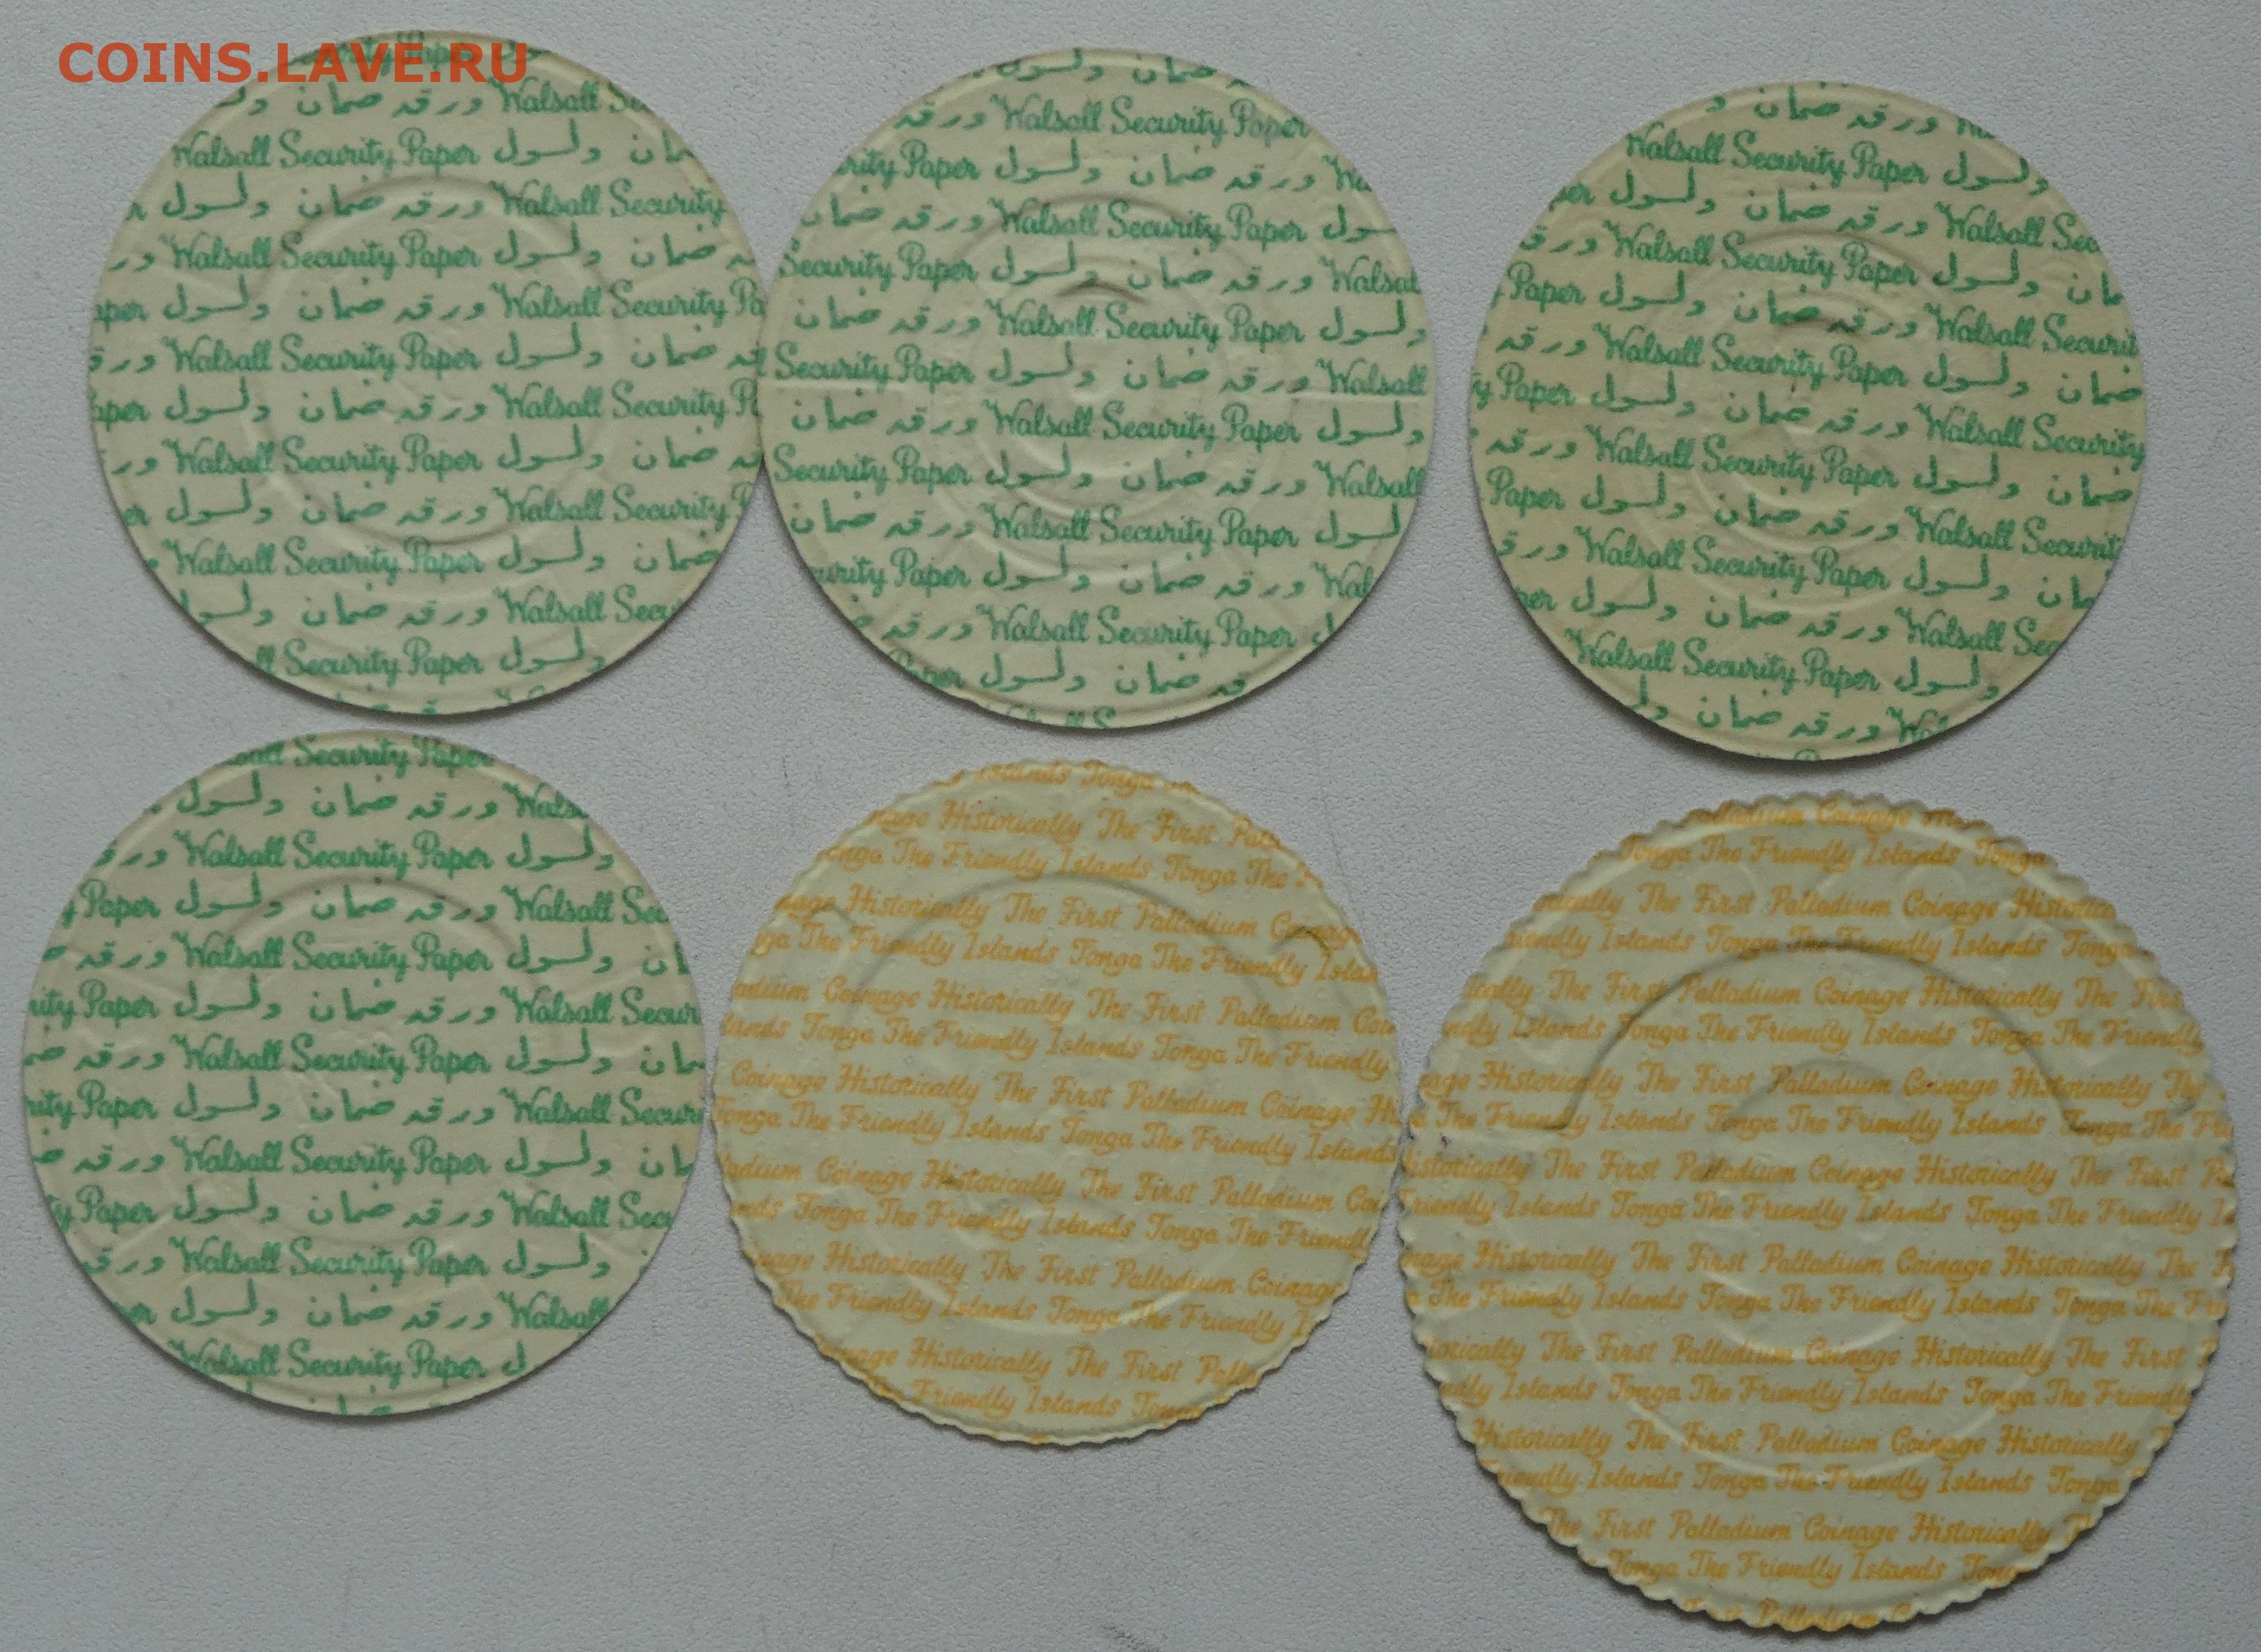 COINS.LAVE.RU
Paper
ورقه ضمان Walsall
Walsall Security Paper ولسول
ورقه ضمان ولسول Walsall Security
Walsall Security Paper ضمان ولسول
ورقه ضمان ولسول Walsall Security
Walsall Security Paper ضمان ولسول
ورقه ضمان ولسول Walsall Security
Walsall Security Paper ضمان ولسول
ورقه ضمان ولسول Walsall Security
Walsall Security Paper ضمان ولسول
ورقه ضمان ولسول Walsall
Security Paper ولسول
ضمان ولسول
ورقه Walsall Security Paper
Paper ورقه ضمان ولسول
ورقه ضمان Walsall Security Paper
Security Paper ورقه ضمان ولسول Walsall
ورقه ضمان Walsall Security Paper ولسول
Security Paper ورقه ضمان ولسول Walsall
ورقه ضمان Walsall Security Paper ولسول
Security Paper ورقه ضمان ولسول Walsall
ورقه ضمان Walsall Security Paper
Paper ورقه ضمان ولسول
ورقه Walsall Security Paper
ضمان ولسول
ورقه ضمان
Walsall Security Paper ولسول
ورقه ضمان ولسول Walsall
Walsall Security Paper ضمان ولسول
Paper ورقه ضمان ولسول Walsall
ورقه Walsall Security Paper ضمان ولسول
Paper ورقه ضمان ولسول Walsall Security
ورقه Walsall Security Paper ضمان ولسول
Paper ورقه ضمان ولسول Walsall
Walsall Security Paper ولسول
ورقه ضمان ولسول Walsall
Walsall Security Paper ولسول
ورقه ضمان
Security Paper
ورقه ضمان ولسول
Walsall Security Paper ولسول
Paper ورقه ضمان ولسول Walsall
ورقه Walsall Security Paper ولسول
Paper ورقه ضمان ولسول Walsall
ورقه Walsall Security Paper ولسول
Paper ورقه ضمان ولسول Walsall
ورقه Walsall Security Paper ولسول
Paper ورقه ضمان ولسول Walsall
ورقه Walsall Security Paper ولسول
ورقه ضمان ولسول Walsall
Walsall Security Paper
Islands Tonga
Historically The First
Tonga The Friendly Islands Tonga The
Historically The First Palladium Coinage
The Friendly Islands Tonga The Friendly
Coinage Historically The First Palladium
Tonga The Friendly Islands Tonga The Friendly
Coinage Historically The First Palladium Coinage
Tonga The Friendly Islands Tonga The Friendly Islands
Coinage Historically The First Palladium
Tonga The Friendly Islands Tonga The Friendly
Historically The First Palladium Coinage
The Friendly Islands Tonga The Friendly
Historically The First
Friendly Islands
Palladium Coinage
Tonga The Friendly Islands Tonga
The First Palladium Coinage
Islands Tonga The Friendly Islands Tonga
The First Palladium Coinage Historically The
Islands Tonga The Friendly Islands Tonga The Friendly
Historically The First Palladium Coinage Historically The
The Friendly Islands Tonga The Friendly Islands Tonga The
Historically The First Palladium Coinage Historically The First
Friendly Islands Tonga The Friendly Islands Tonga The Friendly
Historically The First Palladium Coinage Historically The
The Friendly Islands Tonga The Friendly Islands Tonga The
The First Palladium Coinage Historically The First
Islands Tonga The Friendly Islands Tonga The Friendly
Historically The First Palladium Coinage Historically
Friendly Islands Tonga The Friendly Islands Tonga
The First Palladium Coinage Historically
Tonga The Friendly Islands
First Palladium